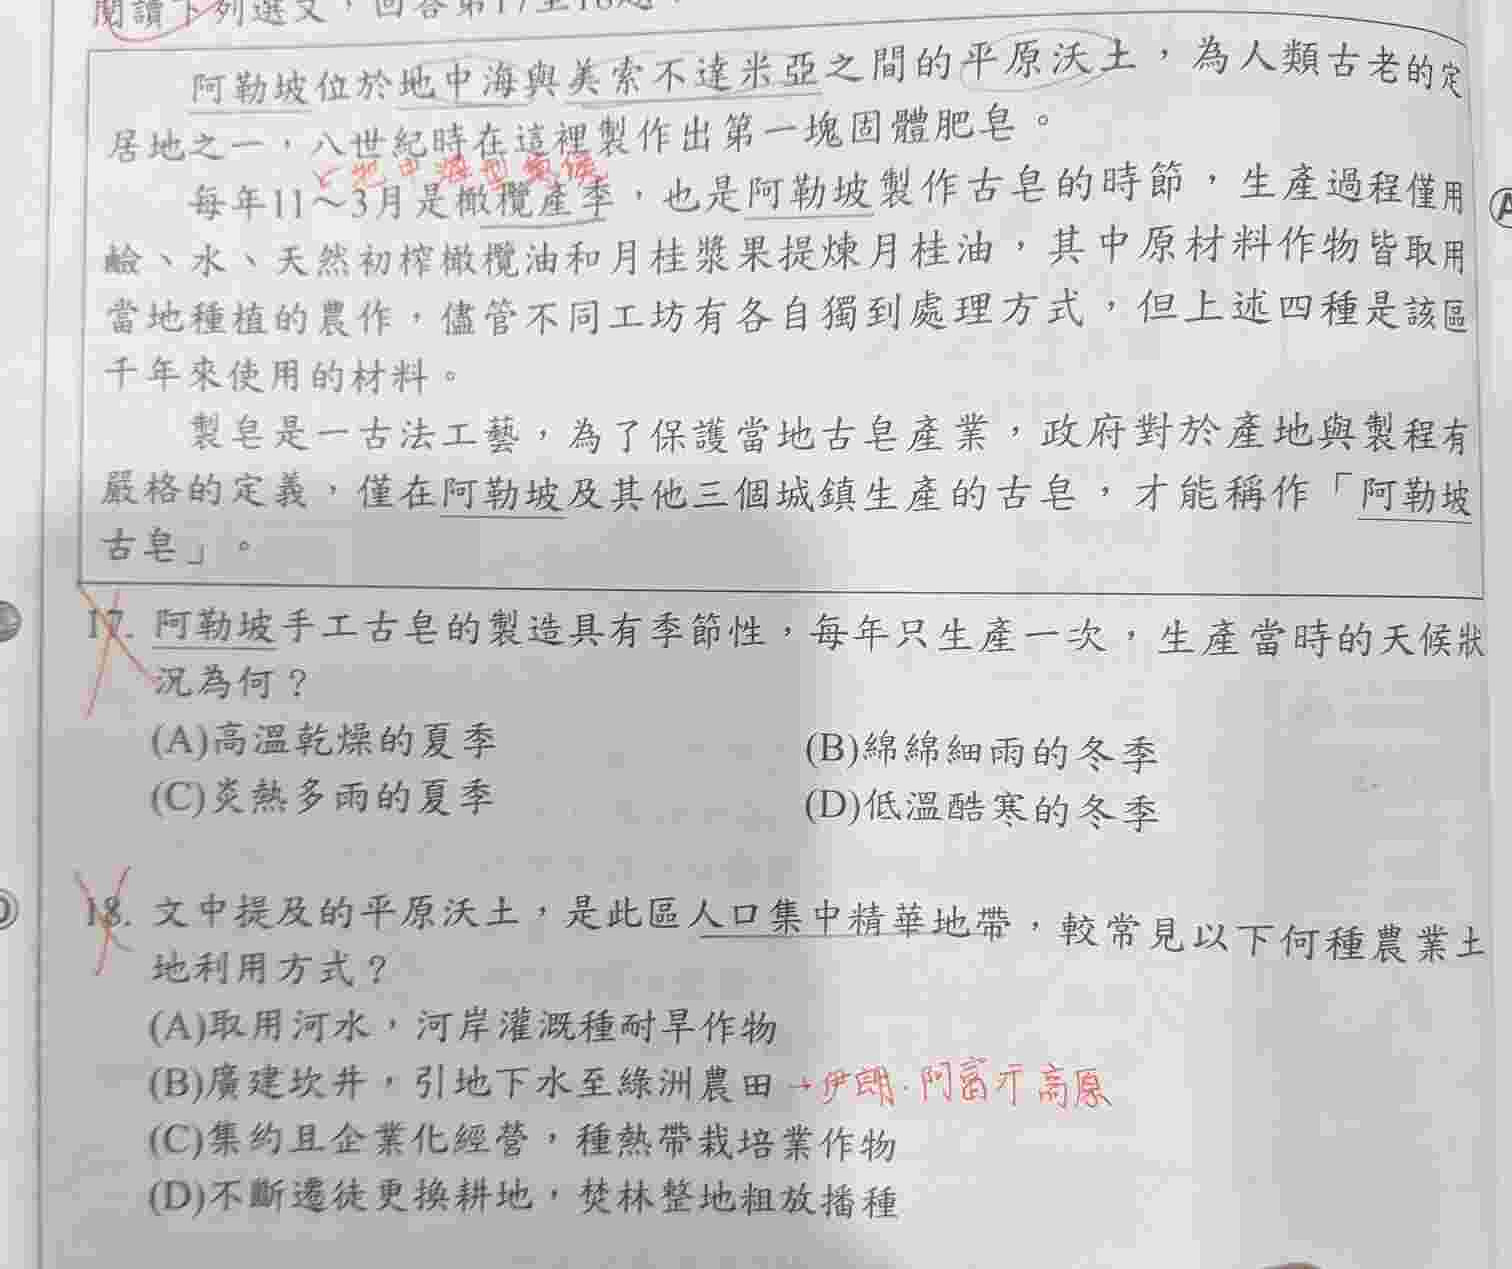 閱讀下列選文，回答第17至18題。
阿勒坡位於地中海與美索不達米亞之間的平原沃土，為人類古老的定
居地之一，八世紀時在這裡製作出第一塊固體肥皂。
地中海型氣候
每年11～3月是橄欖產季，也是阿勒坡製作古皂的時節，生產過程僅用
鹼、水、天然初榨橄欖油和月桂漿果提煉月桂油，其中原材料作物皆取用
當地種植的農作，儘管不同工坊有各自獨到處理方式，但上述四種是該區
千年來使用的材料。
製皂是一古法工藝，為了保護當地古皂產業，政府對於產地與製程有
嚴格的定義，僅在阿勒坡及其他三個城鎮生產的古皂，才能稱作「阿勒坡
古皂」。
17. 阿勒坡手工古皂的製造具有季節性，每年只生產一次，生產當時的天候狀
況為何？
(A)高溫乾燥的夏季 (B)綿綿細雨的冬季
(C)炎熱多雨的夏季 (D)低溫酷寒的冬季
18. 文中提及的平原沃土，是此區人口集中精華地帶，較常見以下何種農業土
地利用方式？
(A)取用河水，河岸灌溉種耐旱作物
(B)廣建坎井，引地下水至綠洲農田→伊朗.阿富汗高原
(C)集約且企業化經營，種熱帶栽培業作物
(D)不斷遷徙更換耕地，焚林整地粗放播種